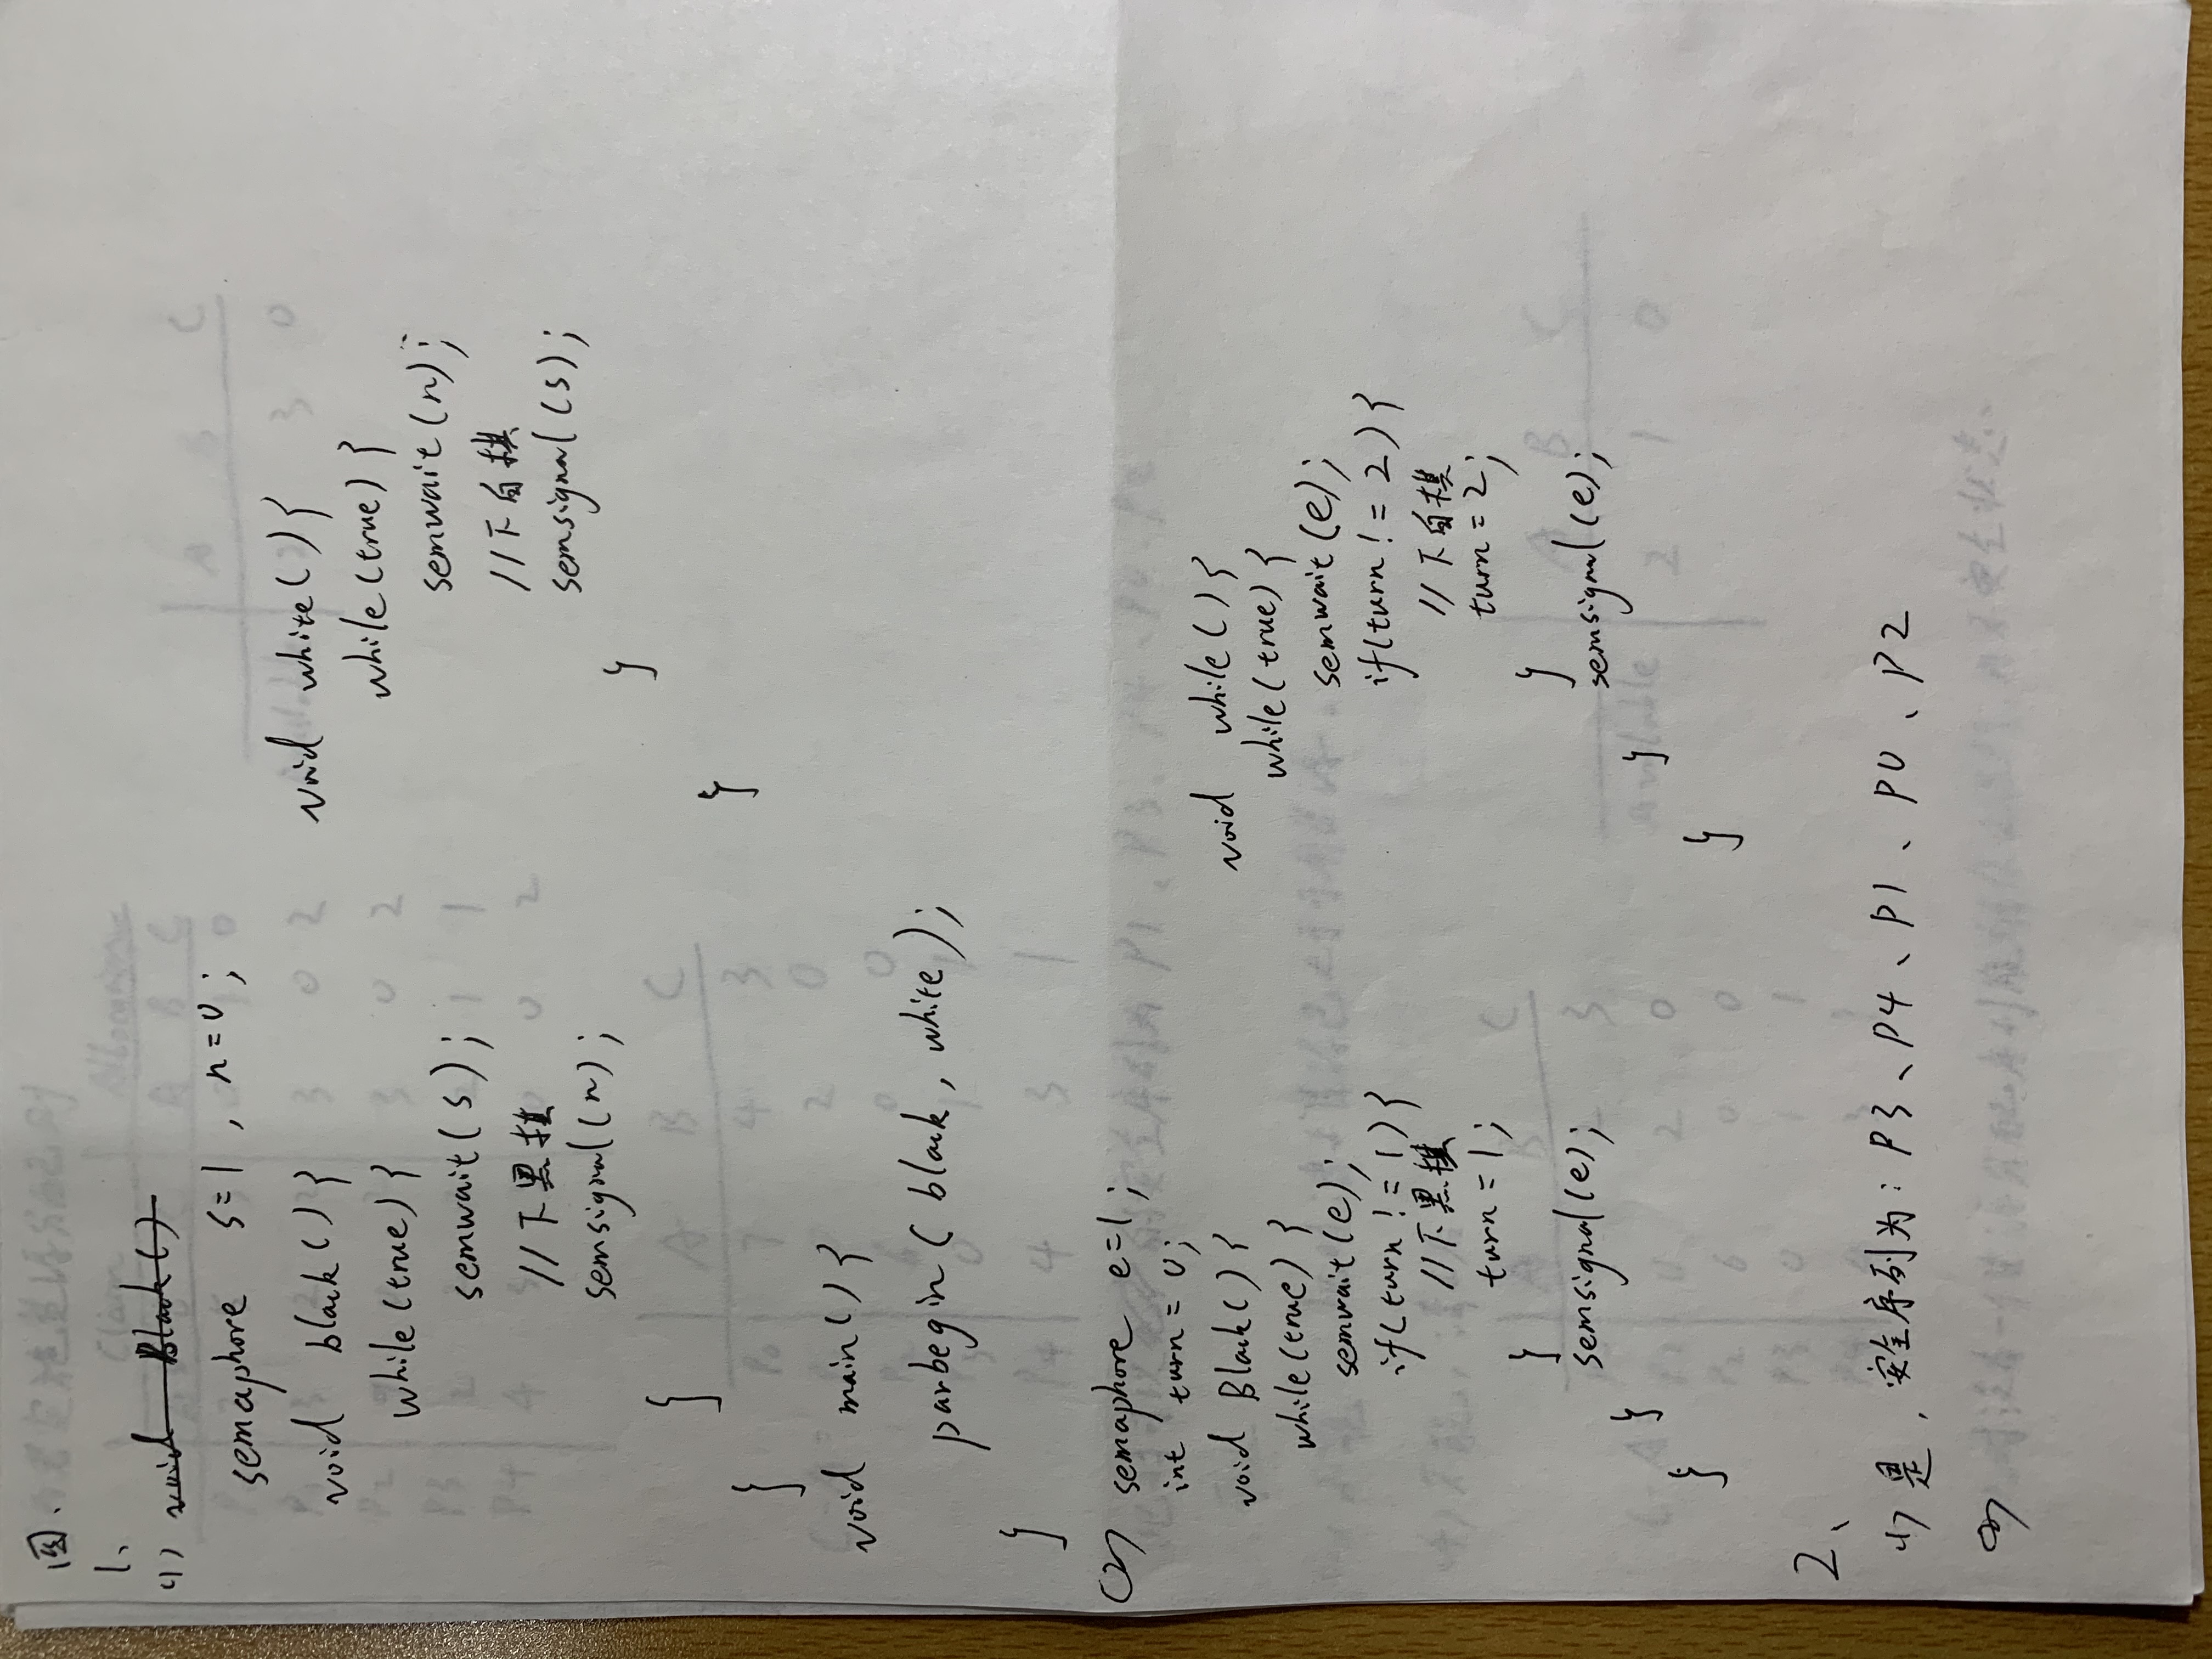 四.
1、
(1) void Black()
semaphore s=1, n=0;
void black(){
while(true){
semwait(s);
//下黑棋
semsignal(n);
}
}
void white(){
while(true){
semwait(n);
//下白棋
semsignal(s);
}
}
void main(){
parbegin(black, white);
}
(2) semaphore e=1;
int turn=0;
void Black(){
while(true){
semwait(e);
if(turn!=1){
//下黑棋
turn=1;
}
semsignal(e);
}
}
void while(){
while(true){
semwait(e);
if(turn!=2){
//下白棋
turn=2;
}
semsignal(e);
}
}
2、
(1) 是, 安全序列为: P3、P4、P1、P0、P2
(2)